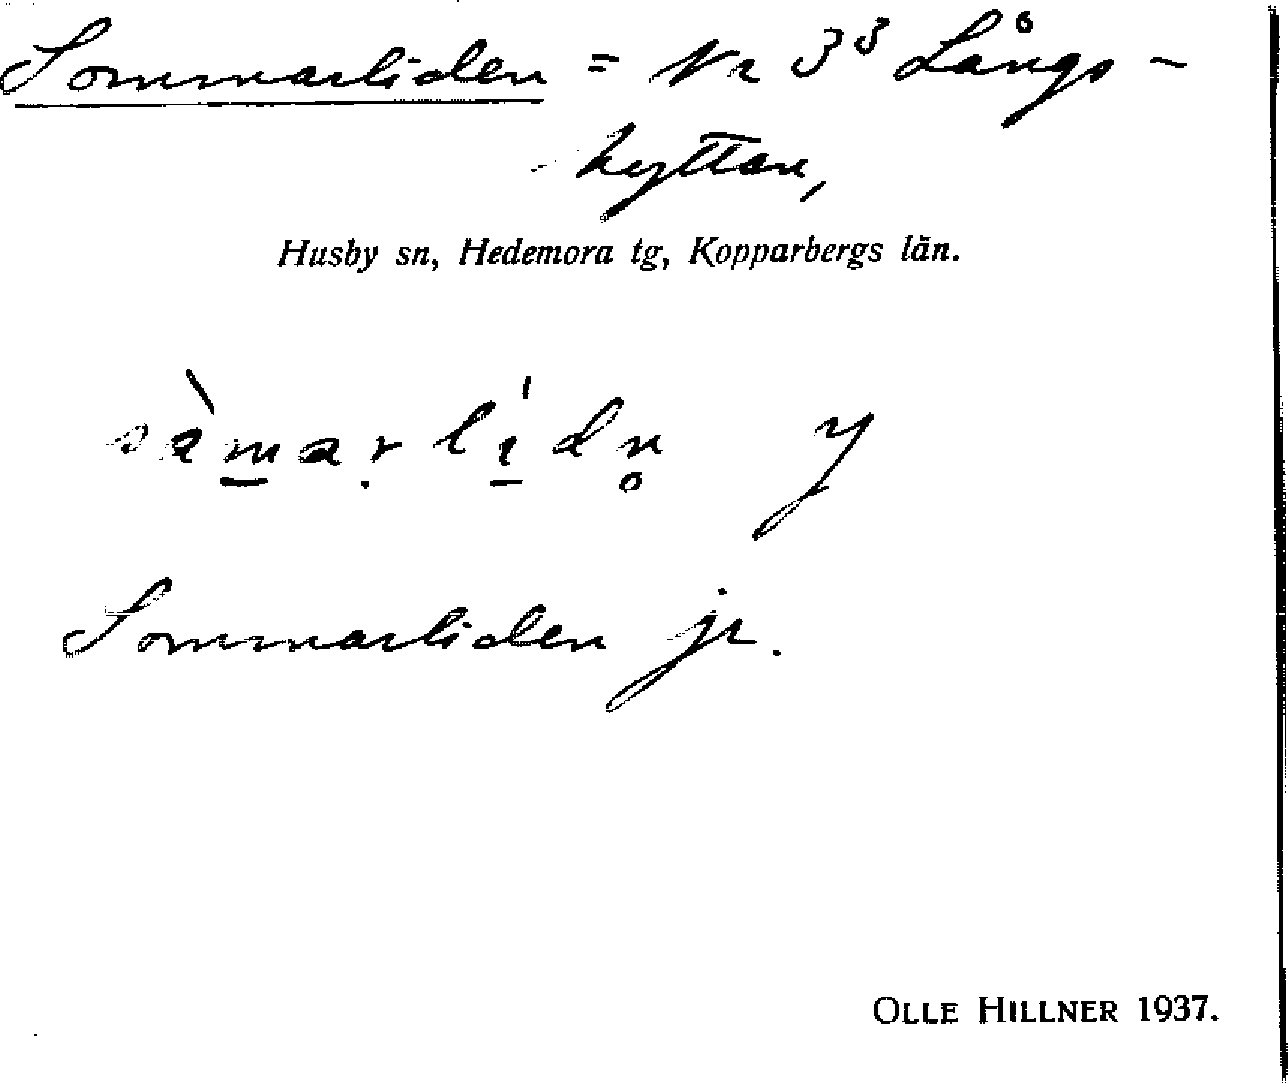 Sommarliden = Nr 3³ Långs-
-hyttan,
Husby sn, Hedemora tg, Kopparbergs län.
sàmaṛlı́dn̥ y
Sommarliden jr.
OLLE HILLNER 1937.